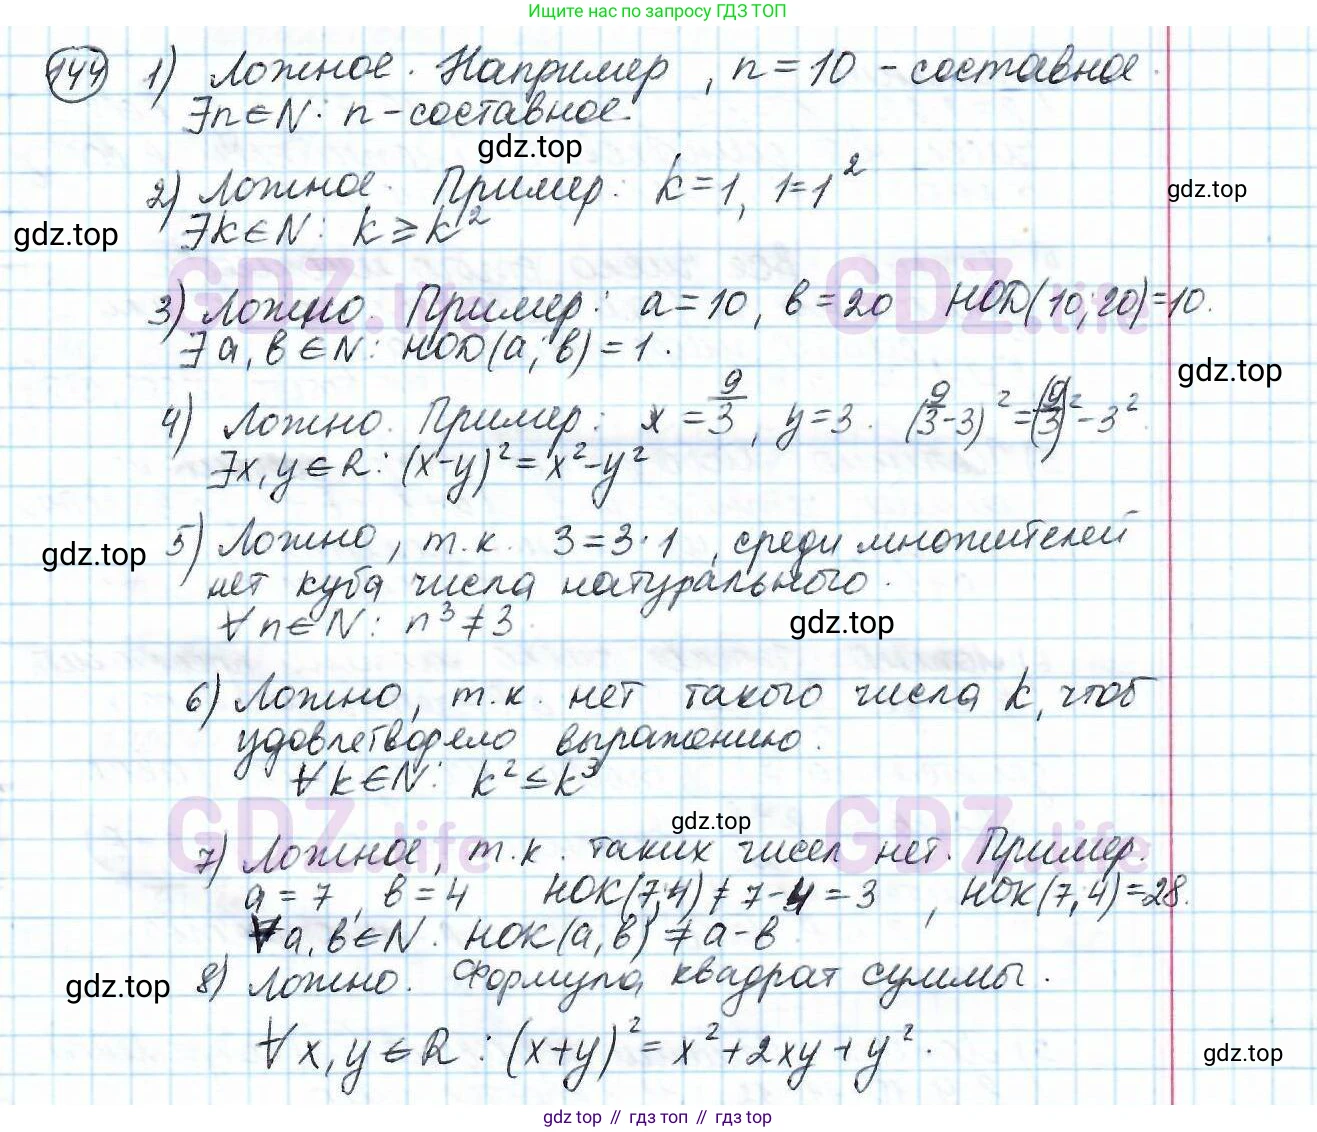 Ищите нас по запросу ГДЗ ТОП
144 1) Ложное. Например, n = 10 - составное.
∃n∈N: n - составное.
gdz.top
2) Ложное. Пример: k = 1, 1 = 1²
gdz.top
∃k∈N: k ⩾ k²
gdz.top
GDZ.life GDZ.life
3) Ложно. Пример: a = 10, b = 20 НОД(10; 20) = 10.
∃a, b ∈ N: НОД(a; b) = 1.
gdz.top
4) Ложно. Пример: x = 9/3, y = 3. (9/3 - 3)² = (9/3)² - 3².
∃x, y ∈ R: (x-y)² = x² - y²
5) Ложно, т.к. 3 = 3·1, среди множителей
gdz.top
нет куба числа натурального.
∀n∈N: n³ ≠ 3.
gdz.top
6) Ложно, т.к. нет такого числа k, чтоб
удовлетворяло выражению.
∀k∈N: k² ≤ k³
GDZ.life GDZ.life
gdz.top
7) Ложное, т.к. таких чисел нет. Пример.
a = 7, b = 4 НОК(7;4) ≠ 7-4 = 3, НОК(7;4) = 28.
∀a, b∈N. НОК(a, b) ≠ a - b
gdz.top
8) Ложно. Формула, квадрат суммы.
∀x, y ∈ R: (x+y)² = x² + 2xy + y².
gdz.top
gdz.top // гдз топ // гдз.top